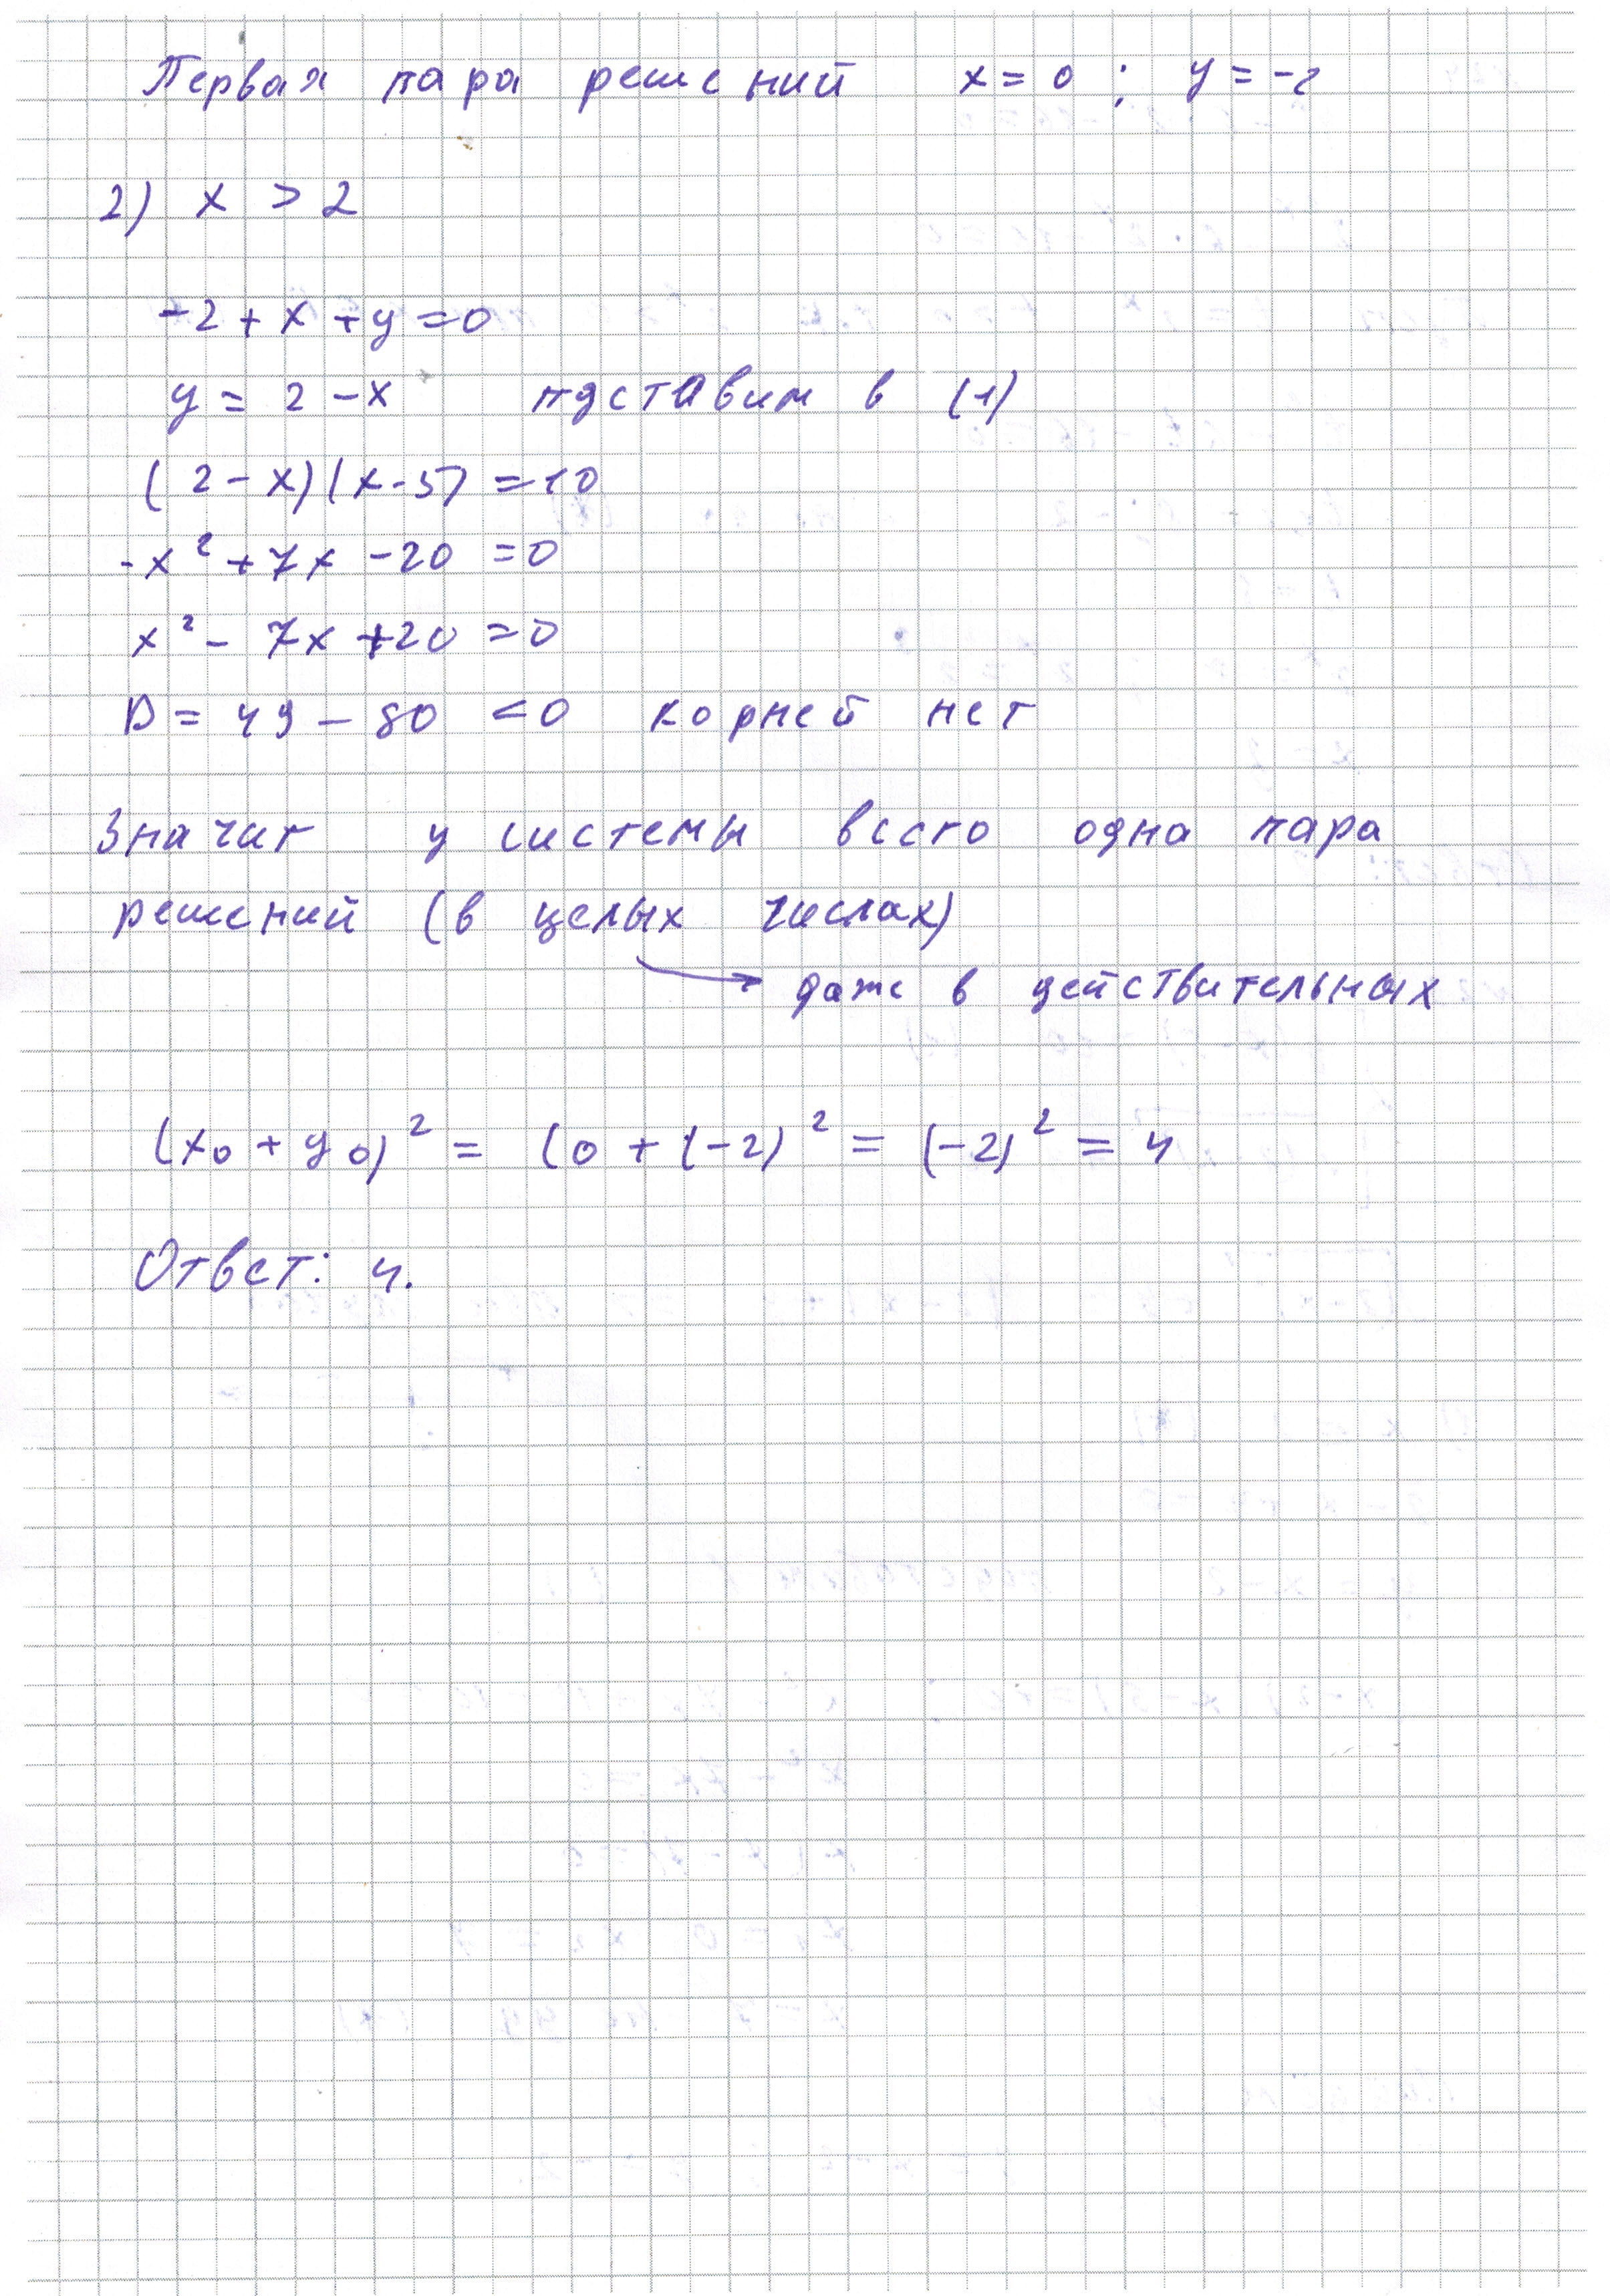 Первая пара решений x = 0 ; y = -2
2) x > 2
-2 + x + y = 0
y = 2 - x пдставим в (1)
(2 - x)(x - 5) = 10
-x² + 7x - 20 = 0
x² - 7x + 20 = 0
D = 49 - 80 < 0 корней нет
Значит у системы всего одна пара
решений (в целых числах)
→ даже в действительных
(x₀ + y₀)² = (0 + (-2)² = (-2)² = 4
Ответ: 4.